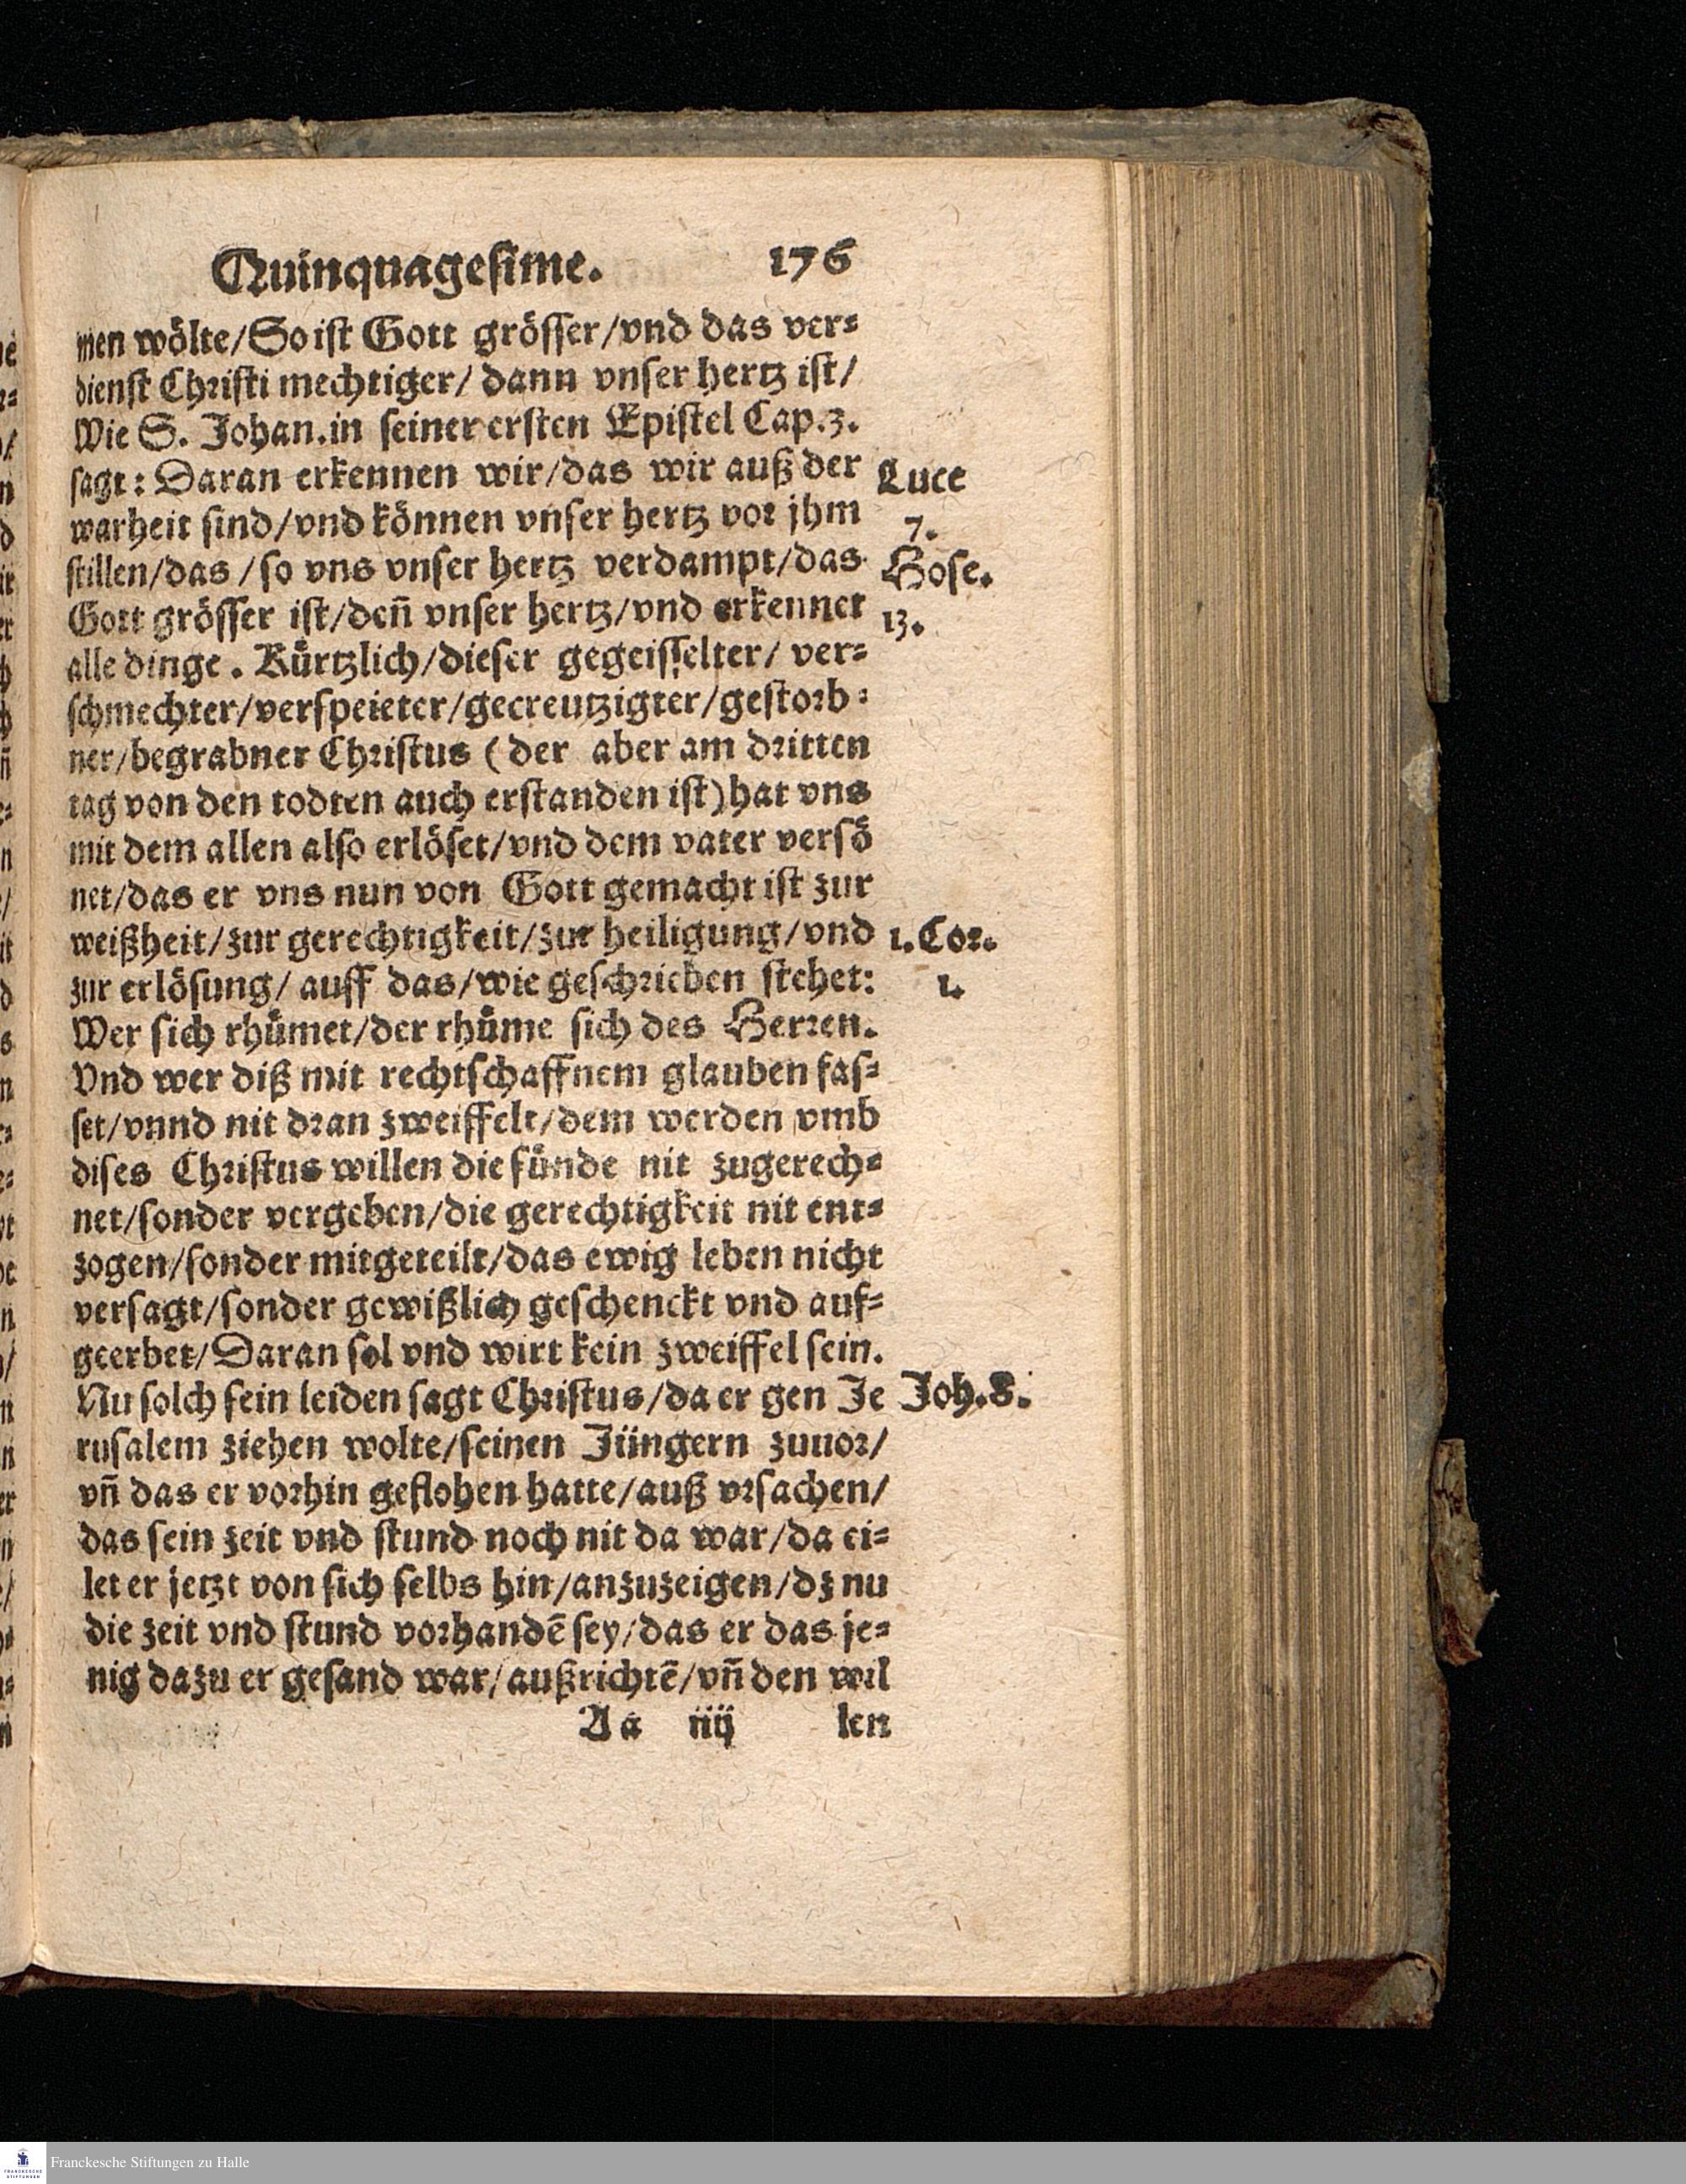 Quinquagesime. 176
men wölte/So ist Gott grösser/vnd das ver⸗
dienst Christi mechtiger/ dann vnser hertz ist/
Wie S. Johan.in seiner ersten Epistel Cap.3.
sagt: Daran erkennen wir/das wir auß der
Luce
warheit sind/vnd können vnser hertz vor jhm
7.
stillen/das /so vns vnser hertz verdampt/das
Hose.
Gott grösser ist/deñ vnser hertz/vnd erkennet
13.
alle dinge. Kürtzlich/dieser gegeisselter/ ver⸗
schmechter/verspeieter/gecreutzigter/gestorb⸗
ner/begrabner Christus (der aber am dritten
tag von den todten auch erstanden ist)hat vns
mit dem allen also erlöset/vnd dem vater versö
net/das er vns nun von Gott gemacht ist zur
weißheit/zur gerechtigkeit/zur heiligung/vnd
1.Cor.
zur erlösung/ auff das/wie geschrieben stehet:
1.
Wer sich rhümet/der rhüme sich des Herren.
Vnd wer diß mit rechtschaffnem glauben fas⸗
set/vnnd nit dran zweiffelt/dem werden vmb
dises Christus willen die sünde nit zugerech⸗
net/sonder vergeben/die gerechtigkeit nit ent⸗
zogen/sonder mitgeteilt/das ewig leben nicht
versagt/sonder gewißlich geschenckt vnd auf⸗
geerbet/Daran sol vnd wirt kein zweiffel sein.
Nu solch sein leiden sagt Christus/da er gen Je
Joh.8.
rusalem ziehen wolte/seinen Jüngern zuuor/
vñ das er vorhin geflohen hatte/auß vrsachen/
das sein zeit vnd stund noch nit da war/da ei⸗
let er jetzt von sich selbs hin/anzuzeigen/dz nu
die zeit vnd stund vorhandē sey/das er das je⸗
nig dazu er gesand war/außrichtē/vñ den wil
Aa iiij len
Franckesche Stiftungen zu Halle
FRANCKESCHE
STIFTUNGEN